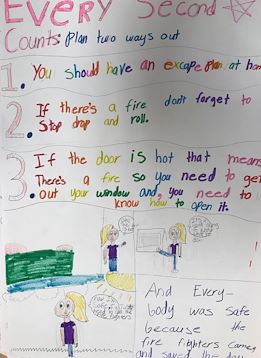 Every Second
Counts: Plan two ways out
1. You should have an excape plan. at hom
2. If there's a fire don't forget to
Stop drop and roll.
3. If the door is hot that means
There's a fire so you need to get
out your window and you need to
know how to open it.
And Every-
body was safe
because the
fire fighters came
and saved the day